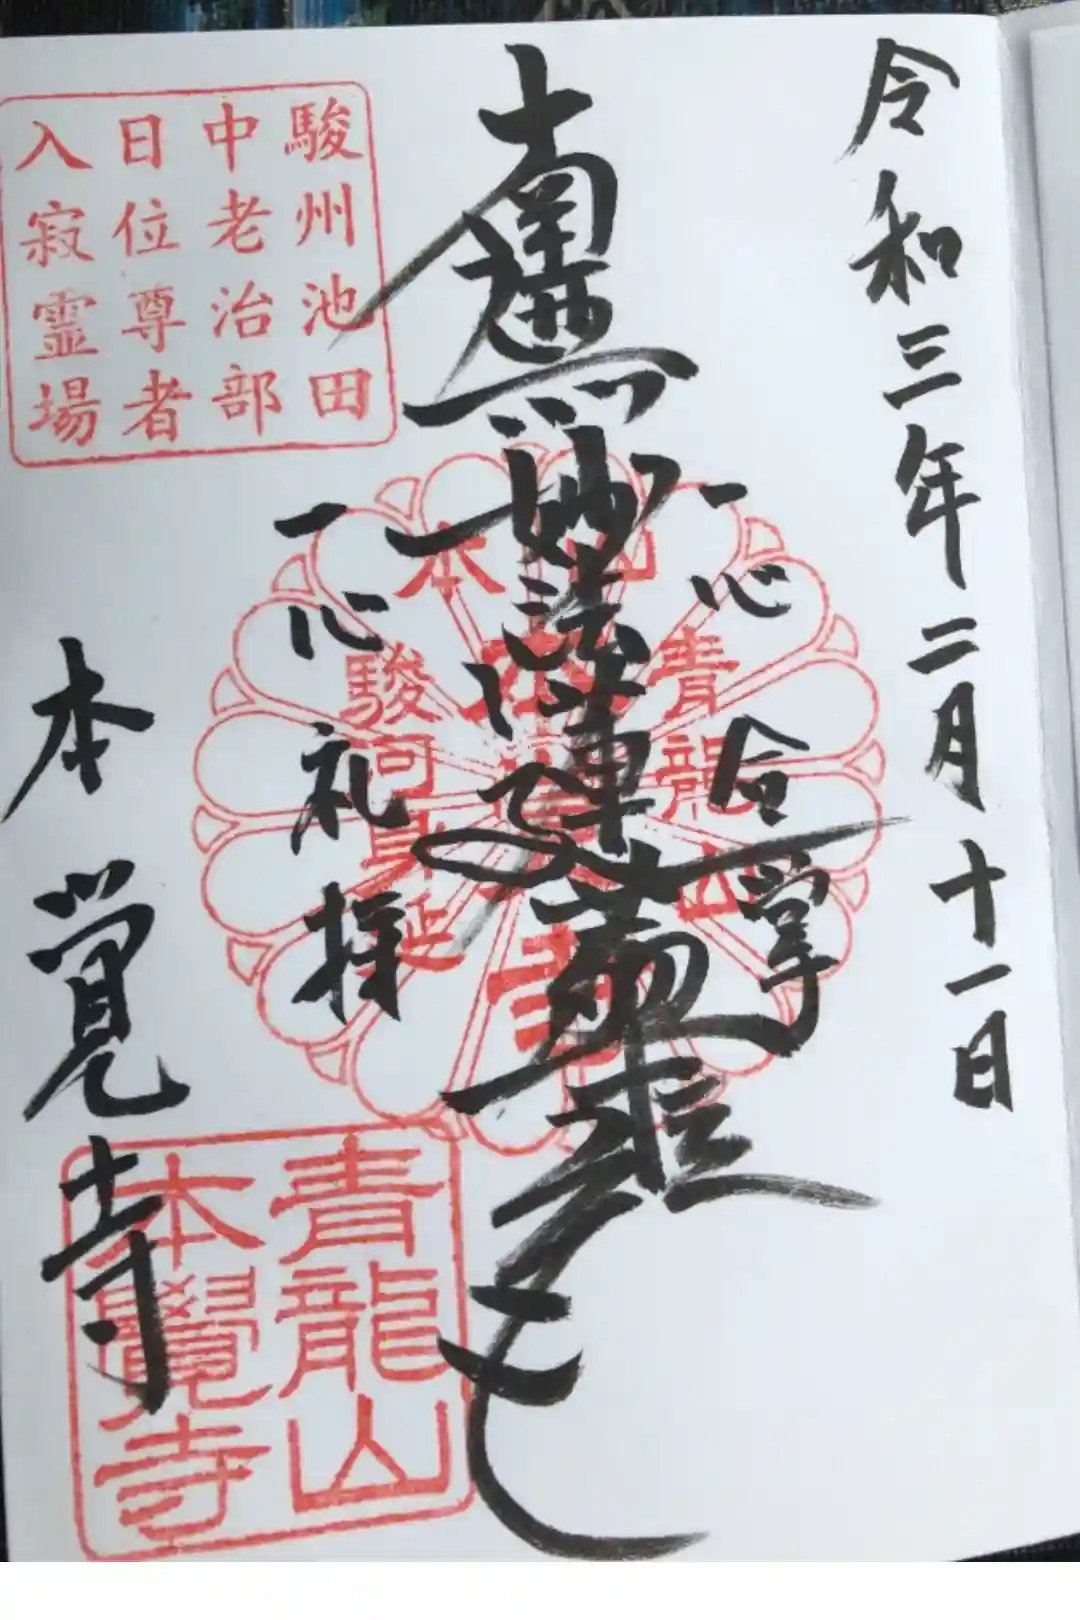 令和三年二月十一日
一心合掌
南無妙法蓮華経
一心礼拝
本覚寺
駿州池田
中老治部
日位尊者
入寂霊場
青龍山
本山
駿河身延
青龍山
本覺寺